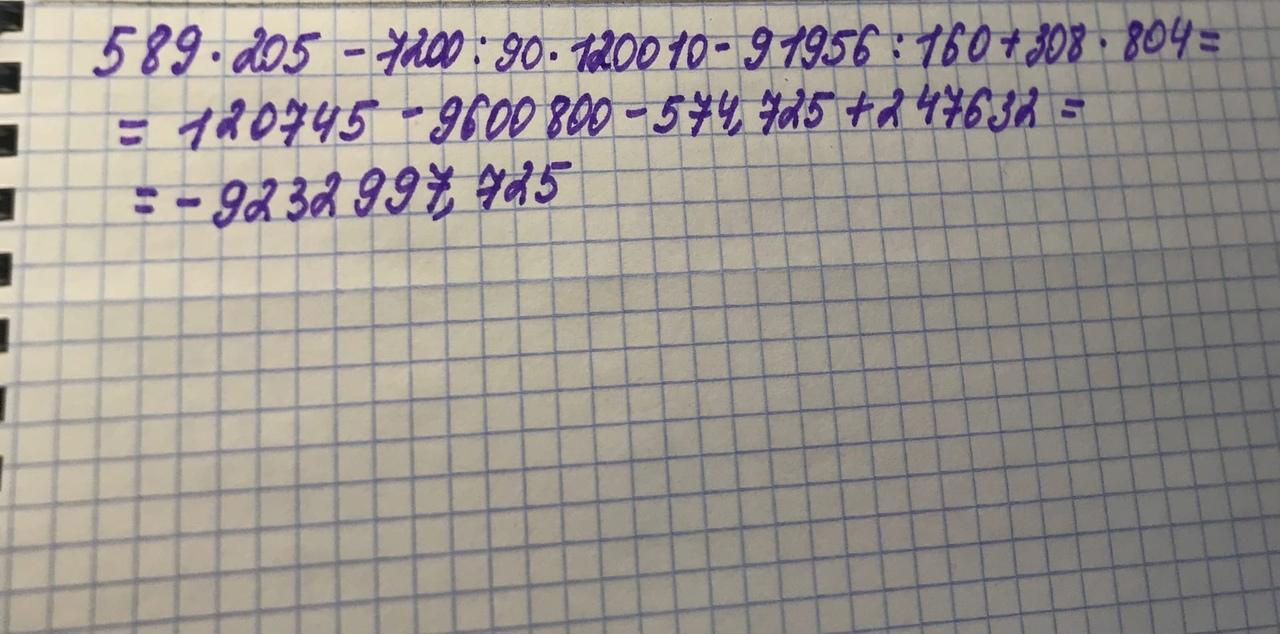 589 · 205 - 7200 : 90 · 120010 - 91956 : 160 + 308 · 804 =
= 120745 - 9600800 - 574,725 + 247632 =
= - 9232997,725